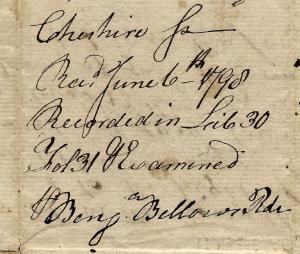 Cheshire Ss
Recd June 6th 1798
Recorded in Lib 30
Fol 31 & Examined
& Benja Bellows Rdr